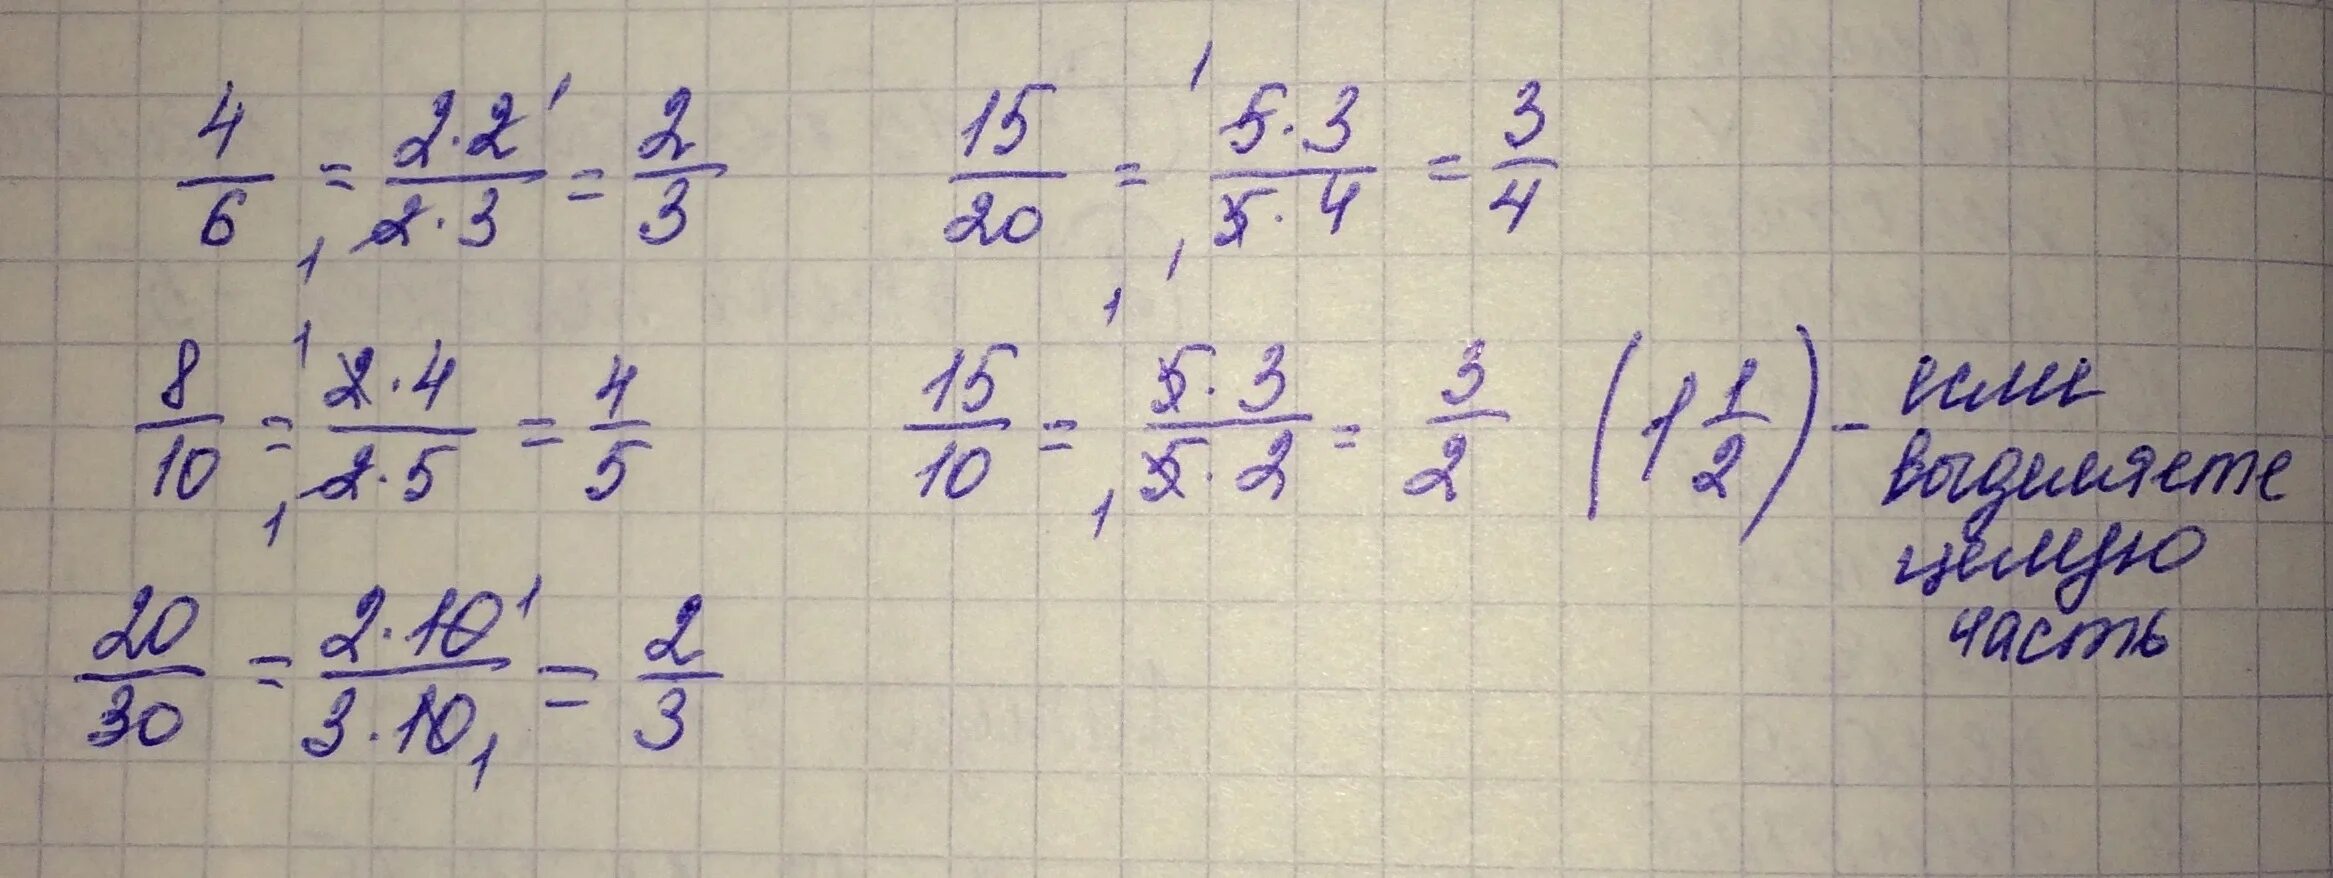 4/6 = 2·2¹/₁2·3 = 2/3
15/20 = ¹5·3/₁5·4 = 3/4
8/10 = ¹2·4/₁2·5 = 4/5
15/10 = ¹5·3/₁5·2 = 3/2 (1 1/2) - если
выделяете
целую
часть
20/30 = 2·10¹/3·10₁ = 2/3